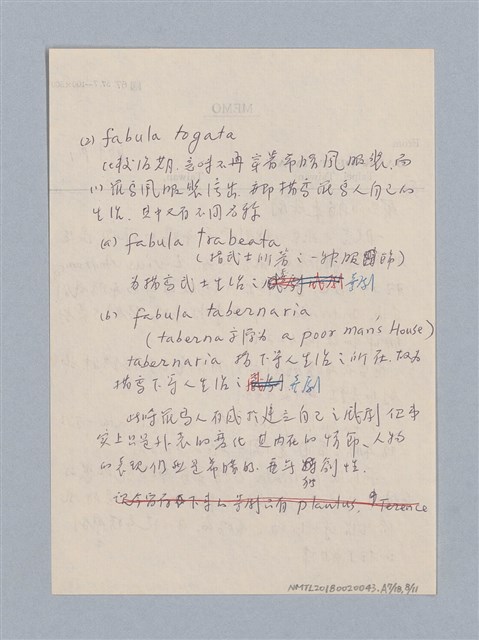 MEMO
(2) fabula togata
比較後期,意味不再穿著希臘風服裝,而
以羅馬風服裝演出,亦即描寫羅馬人自己的
生活,其中又有不同名稱
(a) fabula trabeata
(指武士所著之一種服飾)
為描寫武士生活之 喜劇
(b) fabula tabernaria
(taberna 字源為 a poor man's House)
tabernaria 指下等人生活之所在,故為
描寫下等人生活之 喜劇
此時羅馬人有感於建立自己之戲劇,但事
實上只是外表的變化,其內在的情節、人物
的表現仍都是希臘的,毫無 獨創性.
plautus, Terence
NMTL20180020043, A7/18, 8/11